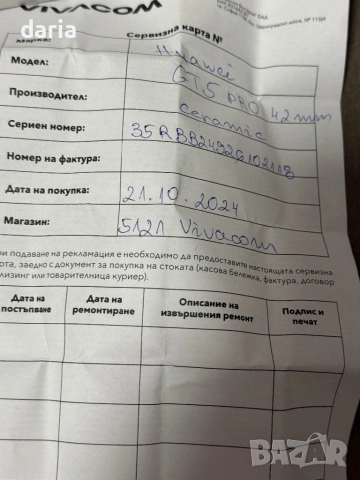 daria
VIVACOM
Сервизна карта №
Марка: Huawei
Модел: GT5 PRO 42mm
Производител: Ceramic
Сериен номер:
Номер на фактура:
Дата на покупка: 21.10.2024
Магазин: 5121 Vivacom
ри подаване на рекламация е необходимо да предоставите настоящата сервизна
рта, заедно с документ за покупка на стоката (касова бележка, фактура, договор
лизинг или товарителница куриер).
Дата на постъпване Дата на ремонтиране Описание на извършения ремонт Подпис и печат
BAZAR